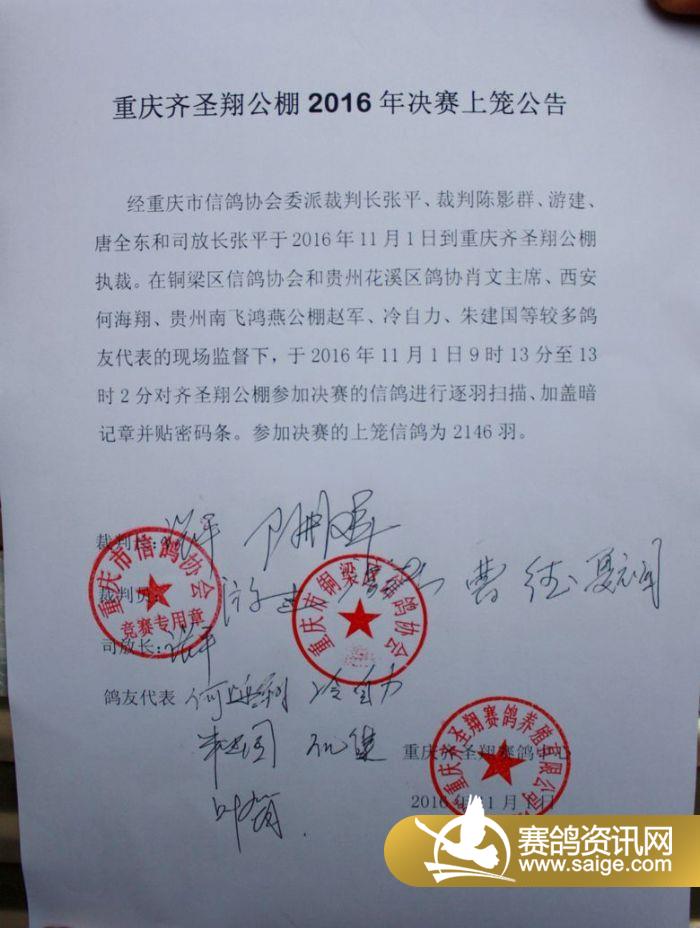 重庆齐圣翔公棚 2016 年决赛上笼公告
经重庆市信鸽协会委派裁判长张平、裁判陈影群、游建、
唐全东和司放长张平于 2016 年 11 月 1 日到重庆齐圣翔公棚
执裁。在铜梁区信鸽协会和贵州花溪区鸽协肖文主席、西安
何海翔、贵州南飞鸿燕公棚赵军、冷自力、朱建国等较多鸽
友代表的现场监督下，于 2016 年 11 月 1 日 9 时 13 分至 13
时 2 分对齐圣翔公棚参加决赛的信鸽进行逐羽扫描、加盖暗
记章并贴密码条。参加决赛的上笼信鸽为 2146 羽。
裁判长: 张平
重庆市信鸽协会
竞赛专用章
裁判员: 游建 曹
重庆市铜梁区信鸽协会
司放长: 张平
鸽友代表 冷自力
朱建国
重庆齐圣翔赛鸽中心
重庆齐圣翔赛鸽养殖有限公司
2016 年 11 月 1 日
赛鸽资讯网
www.saige.com